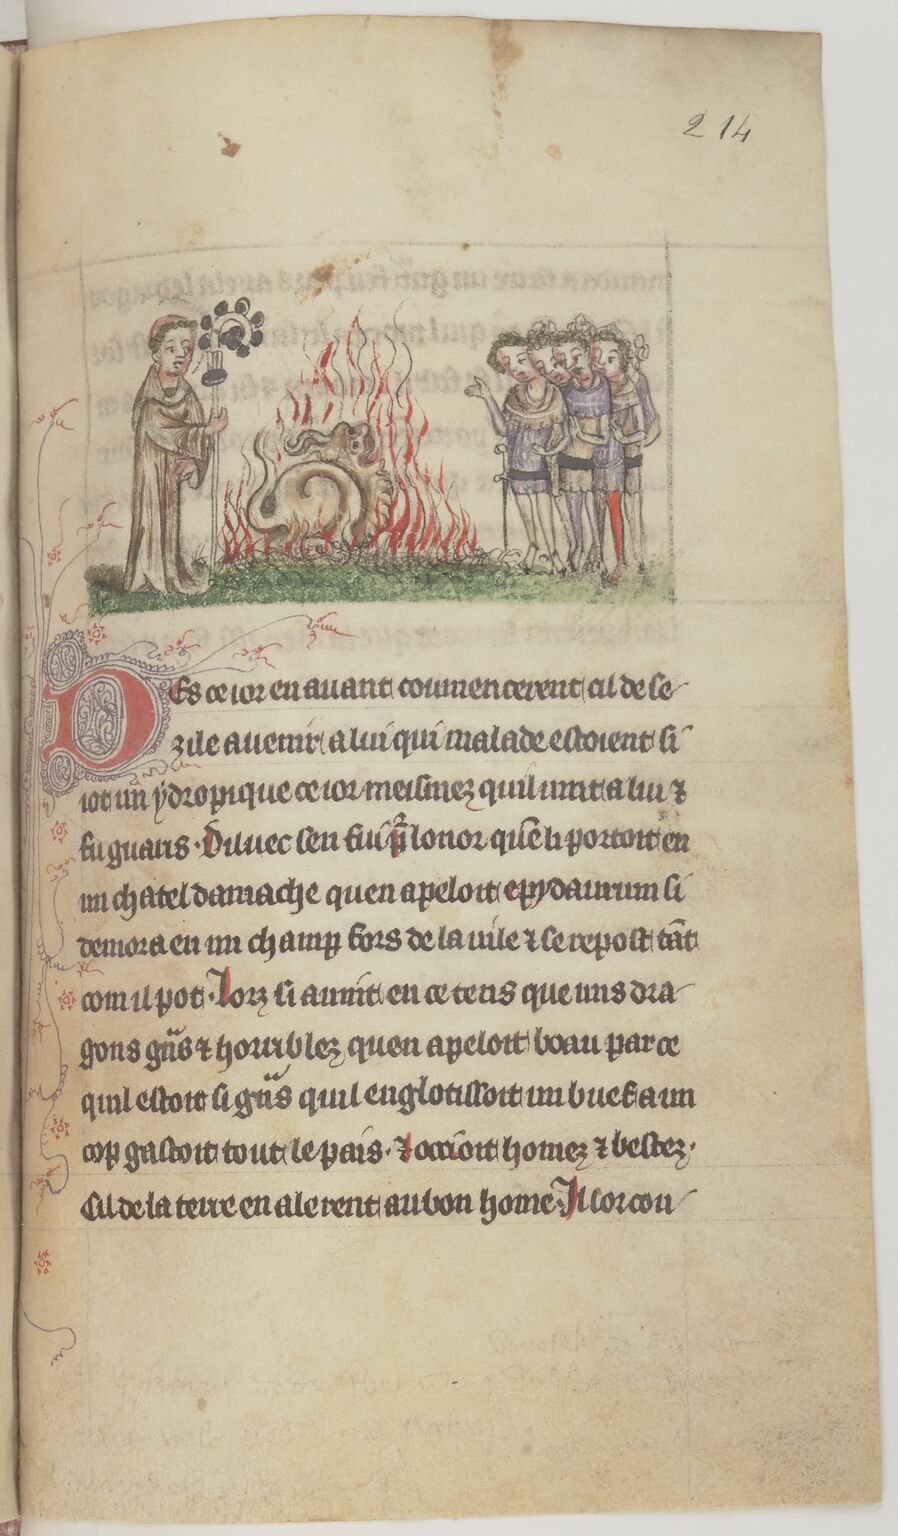 214
Des ce ior en auant coumencerent cil de se
zile a uenir a lui qui malade estoient si
iot un ydropique ce ior meismez quil uint a lui ⁊
fu guaris · Diluec sen fui p̃ lonor qũe li portoit en
un chatel damache quen apeloit epydaurum si
demora en un champ fors de la uile ⁊ se repost tãt
com il pot · Lorz si auint en ce tens que uns dra
gons gñs ⁊ hourrblez quen apeloit boau par ce
quil estoit si gñs quil englotissoit un buef a un
cop gastoit tout le pais · ⁊ occioit homez ⁊ bestez ·
Cil de la terre en alerent au bon home · Il lor cou